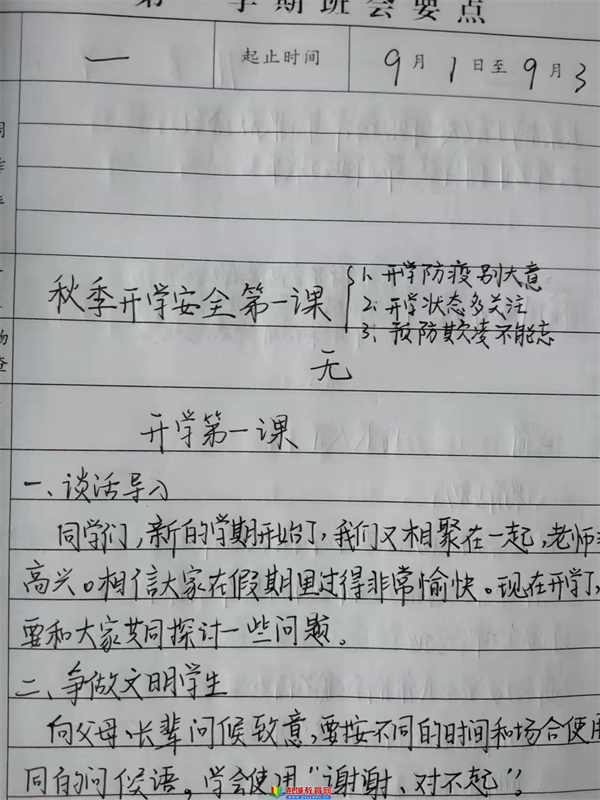 学期班会要点
一 起止时间 9月1日至9月3
秋季开学安全第一课
1、开学防疫别大意
2、开学状态多关注
3、预防欺凌不能忘
无
开学第一课
一、谈话导入
同学们，新的学期开始了，我们又相聚在一起，老师
高兴。相信大家在假期里过得非常愉快。现在开学了，
要和大家共同探讨一些问题。
二、争做文明学生
向父母、长辈问候致意，要按不同的时间和场合使用
同的问候语。学会使用“谢谢、对不起”。
教育网